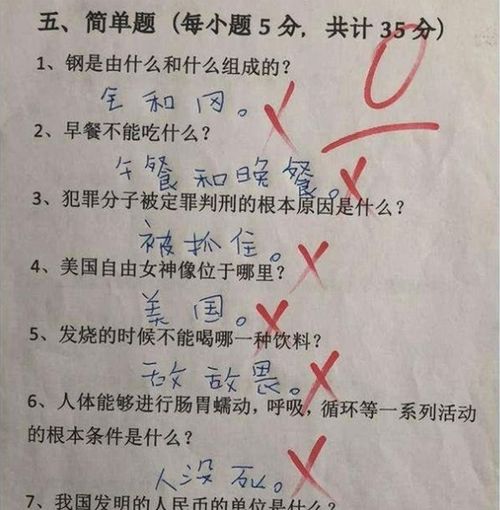 五、简单题（每小题5分，共计35分）
0
1、钢是由什么和什么组成的？
全和冈。
2、早餐不能吃什么？
午餐和晚餐。
3、犯罪分子被定罪判刑的根本原因是什么？
被抓住。
4、美国自由女神像位于哪里？
美国。
5、发烧的时候不能喝哪一种饮料？
敌敌畏。
6、人体能够进行肠胃蠕动，呼吸，循环等一系列活动
的根本条件是什么？
人没死。
7、我国发明的人民币的单位是什么？